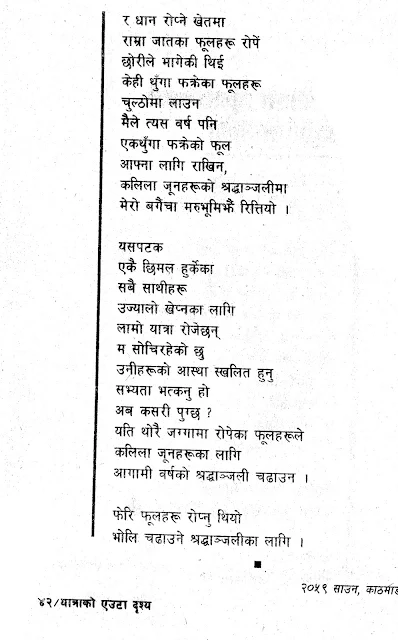 र धान रोप्ने खेतमा
राम्रा जातका फूलहरू रोपें
छोरीले मागेकी थिई
केही थुँगा फक्रेका फूलहरू
चुल्ठोमा लाउन
मैले त्यस वर्ष पनि
एकथुँगा फक्रेको फूल
आफ्ना लागि राखिन,
कलिला जूनहरूको श्रद्धाञ्जलीमा
मेरो बगैंचा मरुभूमिझैं रित्तियो ।
यसपटक
एकै छिमल हुर्केका
सबै साथीहरू
उज्यालो खेप्नका लागि
लामो यात्रा रोजेछन्
म सोचिरहेको छु
उनीहरूको आस्था स्खलित हुनु
सभ्यता भत्कनु हो
अब कसरी पुग्छ ?
यति थोरै जग्गामा रोपेका फूलहरूले
कलिला जूनहरूका लागि
आगामी वर्षको श्रद्धाञ्जली चढाउन ।
फेरि फूलहरू रोप्नु थियो
भोलि चढाउने श्रद्धाञ्जलीका लागि ।
२०५९ साउन, काठमाडौ
४२/यात्राको एउटा दृश्य